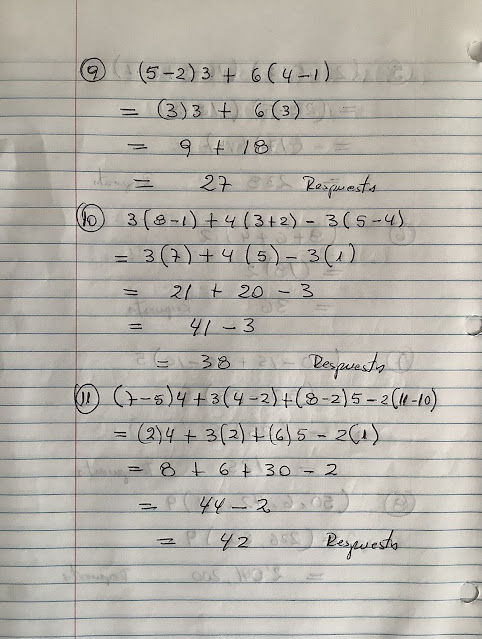 9 (5-2)3 + 6(4-1)
= (3)3 + 6(3)
= 9 + 18
= 27 Respuesta
10 3(8-1) + 4(3+2) - 3(5-4)
= 3(7) + 4(5) - 3(1)
= 21 + 20 - 3
= 41 - 3
= 38 Respuesta
11 (7-5)4 + 3(4-2) + (8-2)5 - 2(11-10)
= (2)4 + 3(2) + (6)5 - 2(1)
= 8 + 6 + 30 - 2
= 44 - 2
= 42 Respuesta